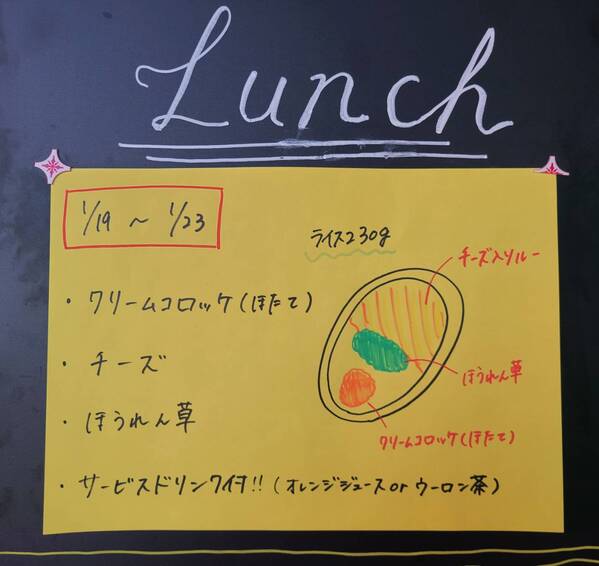 Lunch
1/19 ～ 1/23
ライス230g
チーズ入りルー
・クリームコロッケ(ほたて)
・チーズ
ほうれん草
・ほうれん草
クリームコロッケ(ほたて)
・サービスドリンク付!!(オレンジジュースorウーロン茶)